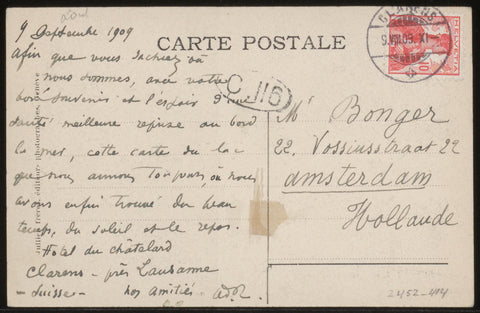 CARTE POSTALE
9 Septembre 1909
Afin que vous sachiez où
nous sommes, avec votre
bon souvenir et l'espoir d'une
santé meilleure au bord
la mer, cette carte du lac
que nous aimons toujours, où nous
avons enfin trouvé du beau
temps, du soleil et le repos.
Hotel du Châtelard
Clarens - près Lausanne
- Suisse - nos amitiés - 
C 116
CLARENS
HELVETIA
10
Mr Bonger
22. Vossiusstraat 22
amsterdam
Hollande
Jullien frères, éditeurs, photographes, Genève
2452-414